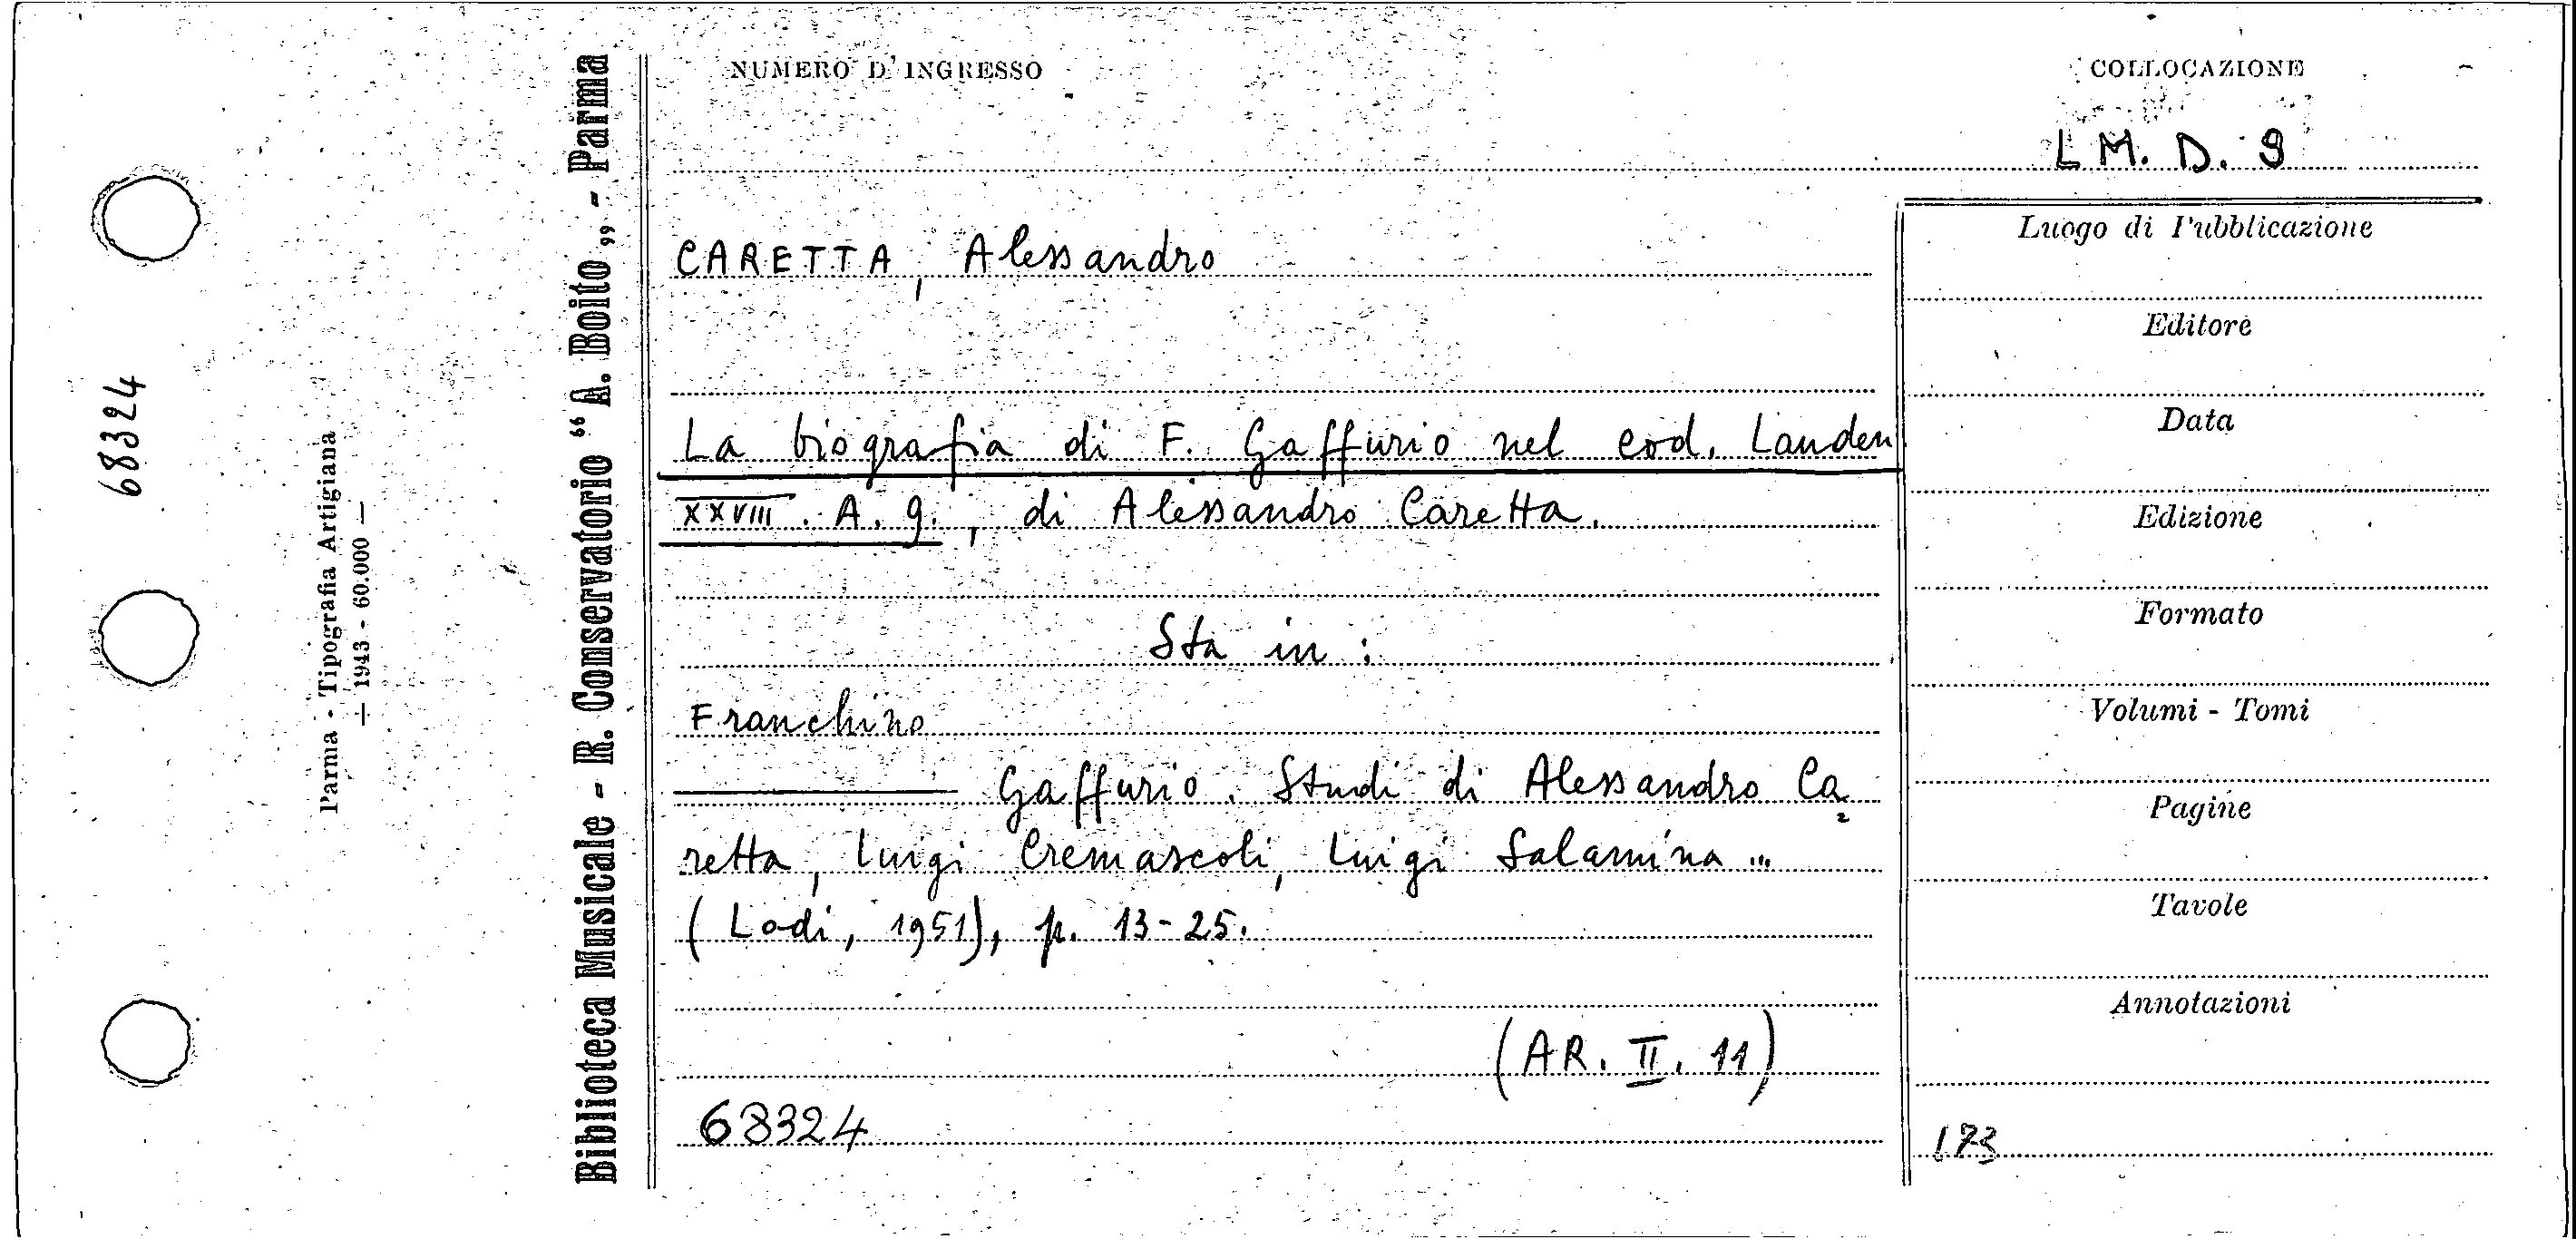 NUMERO D'INGRESSO
COLLOCAZIONE
L M. D. 9
CARETTA, Alessandro
La biografia di F. Gaffurio nel cod. Lauden
XXVIII. A. 9., di Alessandro Caretta.
Sta in:
Franchino
Gaffurio. Studi di Alessandro Ca=
retta, Luigi Cremascoli, Luigi Salamina ...
(Lodi, 1951), p. 13-25.
(AR. II. 11)
68324
Luogo di Pubblicazione
Editore
Data
Edizione
Formato
Volumi - Tomi
Pagine
Tavole
Annotazioni
173
Biblioteca Musicale - R. Conservatorio "A. Boito„ - Parma
Parma - Tipografia Artigiana
— 1943 - 60.000 —
68324